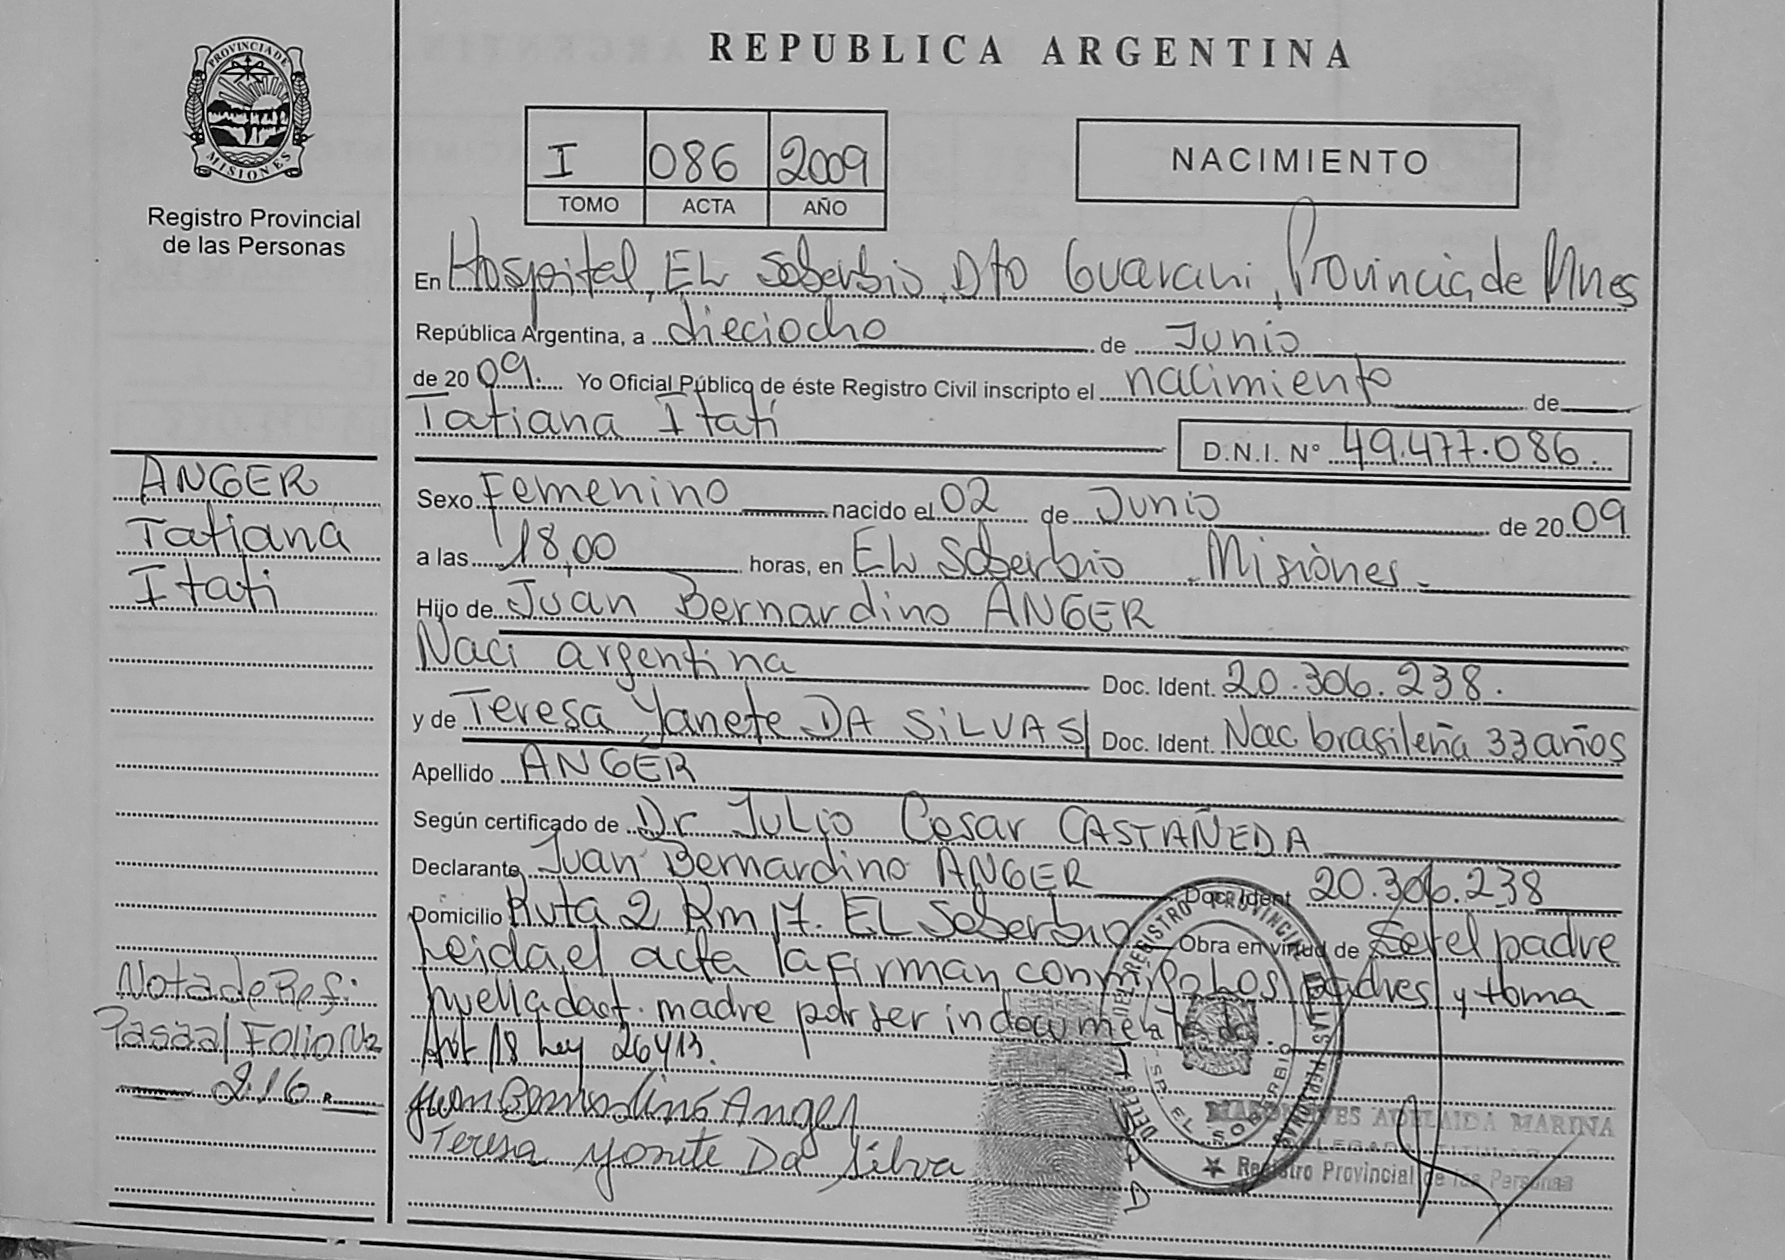 PROVINCIA DE
MISIONES
Registro Provincial
de las Personas
REPUBLICA ARGENTINA
I 086 2009
TOMO ACTA AÑO
NACIMIENTO
En Hospital, EL Soberbio, Dto Guarani, Provincia de Mnes
República Argentina, a dieciocho de Junio
de 2009. Yo Oficial Público de éste Registro Civil inscripto el nacimiento de
Tatiana Itatí
D.N.I. N° 49.477.086.
Sexo Femenino nacido el 02 de Junio de 2009
a las 18,00 horas, en EL Soberbio Misiònes
Hijo de Juan Bernardino ANGER
Naci argentina Doc. Ident. 20.306.238.
y de Teresa Yanete DA SiLVAS Doc. Ident. Nac brasileña 33 años
Apellido ANGER
Según certificado de Dr JULio Cesar CASTAÑEDA
Declarante Juan Bernardino ANGER Doc. Ident 20.306.238
Domicilio Ruta 2 Km 17. EL Soberbio Obra en virtud de Ser el padre
Leida el acta la firman conmigo Los padres y toma
huella dact. madre por ser indocumentada.
Art 18 Ley 26413.
Juan Bernardino Anger
Teresa Yanete Da Silva
ANGER
Tatiana
Itati
Nota de Ref:
Pasa al Folio Nº
216
EL SOBERBIO
ADELAIDA MARINA
Registro Provincial de las Personas